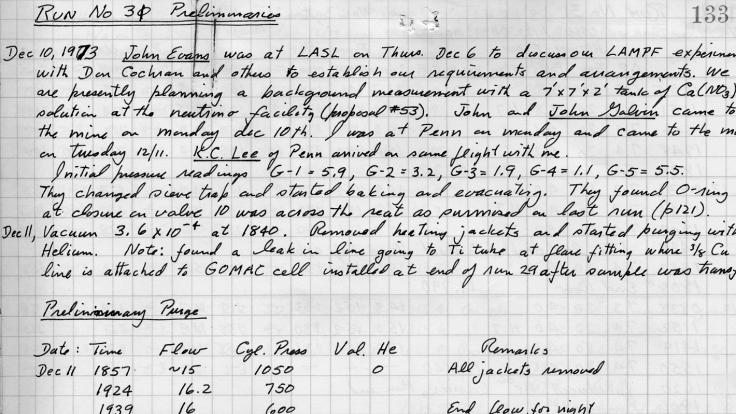 Run No 30 Preliminaries
133
Dec 10, 1973 John Evans was at LASL on Thurs. Dec 6 to discuss our LAMPF experimen
with Don Cochran and others to establish our requirements and arrangements. We
are presently planning a background measurement with a 7'x7'x2' tank of Ca(NO3)
solution at the neutrino facility (proposal #53). John and John Galvin came to
the mine on monday dec 10th. I was at Penn on monday and came to the m
on Tuesday 12/11. K.C. Lee of Penn arrived on same flight with me.
Initial pressure readings G-1 = 5.9, G-2 = 3.2, G-3 = 1.9, G-4 = 1.1, G-5 = 5.5.
They changed sieve trap and started baking and evacuating. They found O-ring
at closure on valve 10 was across the seat as surmised on last run (p121).
Dec 11, Vacuum 3.6 x 10-4 at 1840. Removed heating jackets and started purging with
Helium. Note: found a leak in line going to Ti tube at flare fitting where 3/8 Cu
line is attached to GOMAC cell installed at end of run 29 after sample was trans
Preliminary Purge
Date: Time Flow Cyl. Press Vol. He Remarks
Dec 11 1857 ~15 1050 0 All jackets removed
1924 16.2 750
1939 16 600 End flow for night